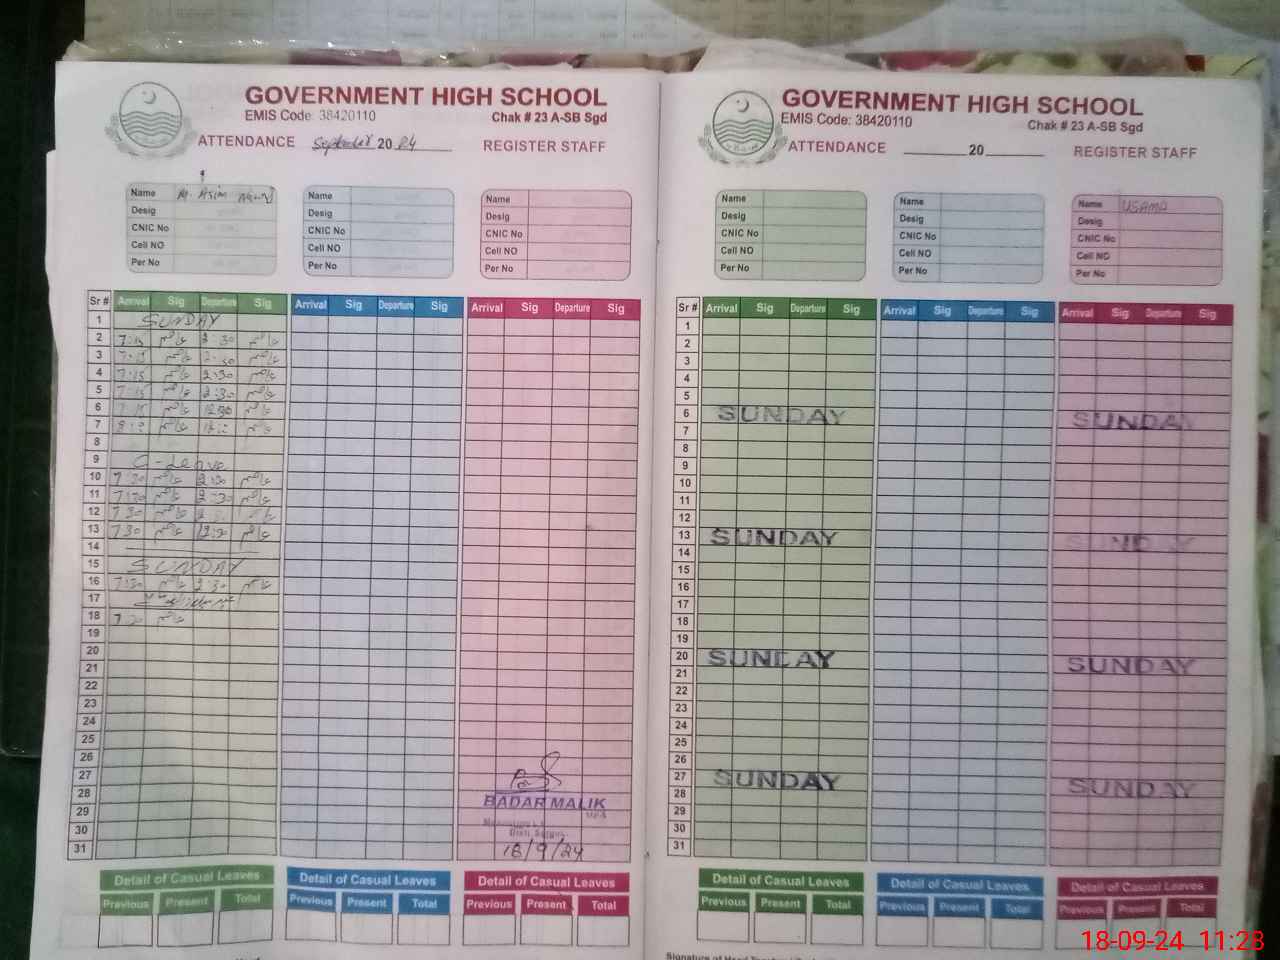 GOVERNMENT HIGH SCHOOL
EMIS Code: 38420110 Chak # 23 A-SB Sgd
ATTENDANCE September 20 24 REGISTER STAFF
Name M. Asim
Desig
CNIC No
Cell NO
Per No
Name
Desig
CNIC No
Cell NO
Per No
Name
Desig
CNIC No
Cell NO
Per No
Sr # Arrival Sig Departure Sig Arrival Sig Departure Sig Arrival Sig Departure Sig
1 SUNDAY
2 7:15 عاصم 2:30 عاصم
3 7:15 عاصم 2:30 عاصم
4 7:15 عاصم 2:30 عاصم
5 7:15 عاصم 2:30 عاصم
6 7:15 عاصم 12:30 عاصم
7 عاصم عاصم
8
9 C-Leave
10 7:30 عاصم 2:30 عاصم
11 7:30 عاصم 2:30 عاصم
12 7:30 عاصم عاصم
13 7:30 عاصم 12:30 عاصم
14
15 SUNDAY
16 7:30 عاصم 2:30 عاصم
17
18 7:30 عاصم
19
20
21
22
23
24
25
26
27
28
29
30
31
BADAR MALIK
18/9/24
Detail of Casual Leaves Detail of Casual Leaves Detail of Casual Leaves
Previous Present Total Previous Present Total Previous Present Total
GOVERNMENT HIGH SCHOOL
EMIS Code: 38420110 Chak # 23 A-SB Sgd
ATTENDANCE 20 REGISTER STAFF
Name
Desig
CNIC No
Cell NO
Per No
Name
Desig
CNIC No
Cell NO
Per No
Name USAMA
Desig
CNIC No
Cell NO
Per No
Sr # Arrival Sig Departure Sig Arrival Sig Departure Sig Arrival Sig Departure Sig
1
2
3
4
5
6 SUNDAY SUNDAY
7
8
9
10
11
12
13 SUNDAY SUNDAY
14
15
16
17
18
19
20 SUNDAY SUNDAY
21
22
23
24
25
26
27 SUNDAY SUNDAY
28
29
30
31
Detail of Casual Leaves Detail of Casual Leaves Detail of Casual Leaves
Previous Present Total Previous Present Total Previous Present Total
Signature of Head
18-09-24 11:23